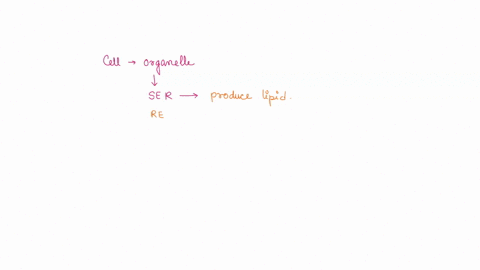 Cell → organelle
↓
SER → produce lipid.
RE